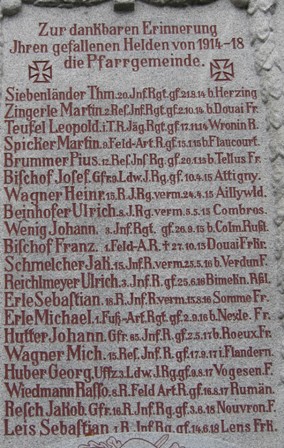 Zur dankbaren Erinnerung
Ihren gefallenen Helden von 1914-18
die Pfarrgemeinde.
Siebenländer Thm. 20. Jnf. Rgt. gf. 21.9.14 b. Herzing
Zingerle Martin. 2. Ref. Jnf. Rgt. gf. 2.10.14. b. Douai Fr.
Teufel Leopold. i. T. R. Jäg. Rgt. gf. 17.11.14 Wronin R.
Spicker Martin. 9. Feld-Art. R. gf. 15.1.15 b. Flaucourt.
Brummer Pius. 12. Ref. Jnf. Rg. gf. 20.1.15 b. Tellus Fr.
Bischof Josef. Gfr. 9. Ldw. J. Rg. gf. 10.4.15 Attigny.
Wagner Heinr. 15. R. J. Rg. verm. 24.4.15 Aillywld.
Beinhofer Ulrich. 8. J. Rg. verm. 5.5.15 Combros.
Wenig Johann. 3. Jnf. Rgt. gf. 26.9.15 b. Colm. Rußl.
Bischof Franz. 1. Feld-A.R. † 27.10.15 Douai Frkr.
Schmelcher Jak. 15. Jnf. R. verm. 25.5.16 b. Verdun F.
Reichlmeyer Ulrich. 3. Jnf. R. gf. 25.6.16 Bimekn. Rßl.
Erle Sebastian. 16. R. Jnf. R. verm. 15.8.16 Somme Fr.
Erle Michael. 1. Fuß-Art. Rgt. gf. 2.9.16 b. Nesle. Fr.
Hutter Johann. Gfr. 65. Jnf. R. gf. 2.5.17 b. Roeux. Fr.
Wagner Mich. 15. Ref. Jnf. R. gf. 17.9.17 i. Flandern.
Huber Georg. Uffz. 3. Ldw. J. Rg. gf. 9.8.17 Vogesen F.
Wiedmann Rasso. 8. R. Feld Art R. gf. 16.8.17 Rumän.
Resch Jakob. Gfr. 16. R. Jnf. Rg. gf. 3.6.18 Nouvron. F.
Leis Sebastian 1. R. Jnf. Rg. gf. 14.6.18 Lens Frk.